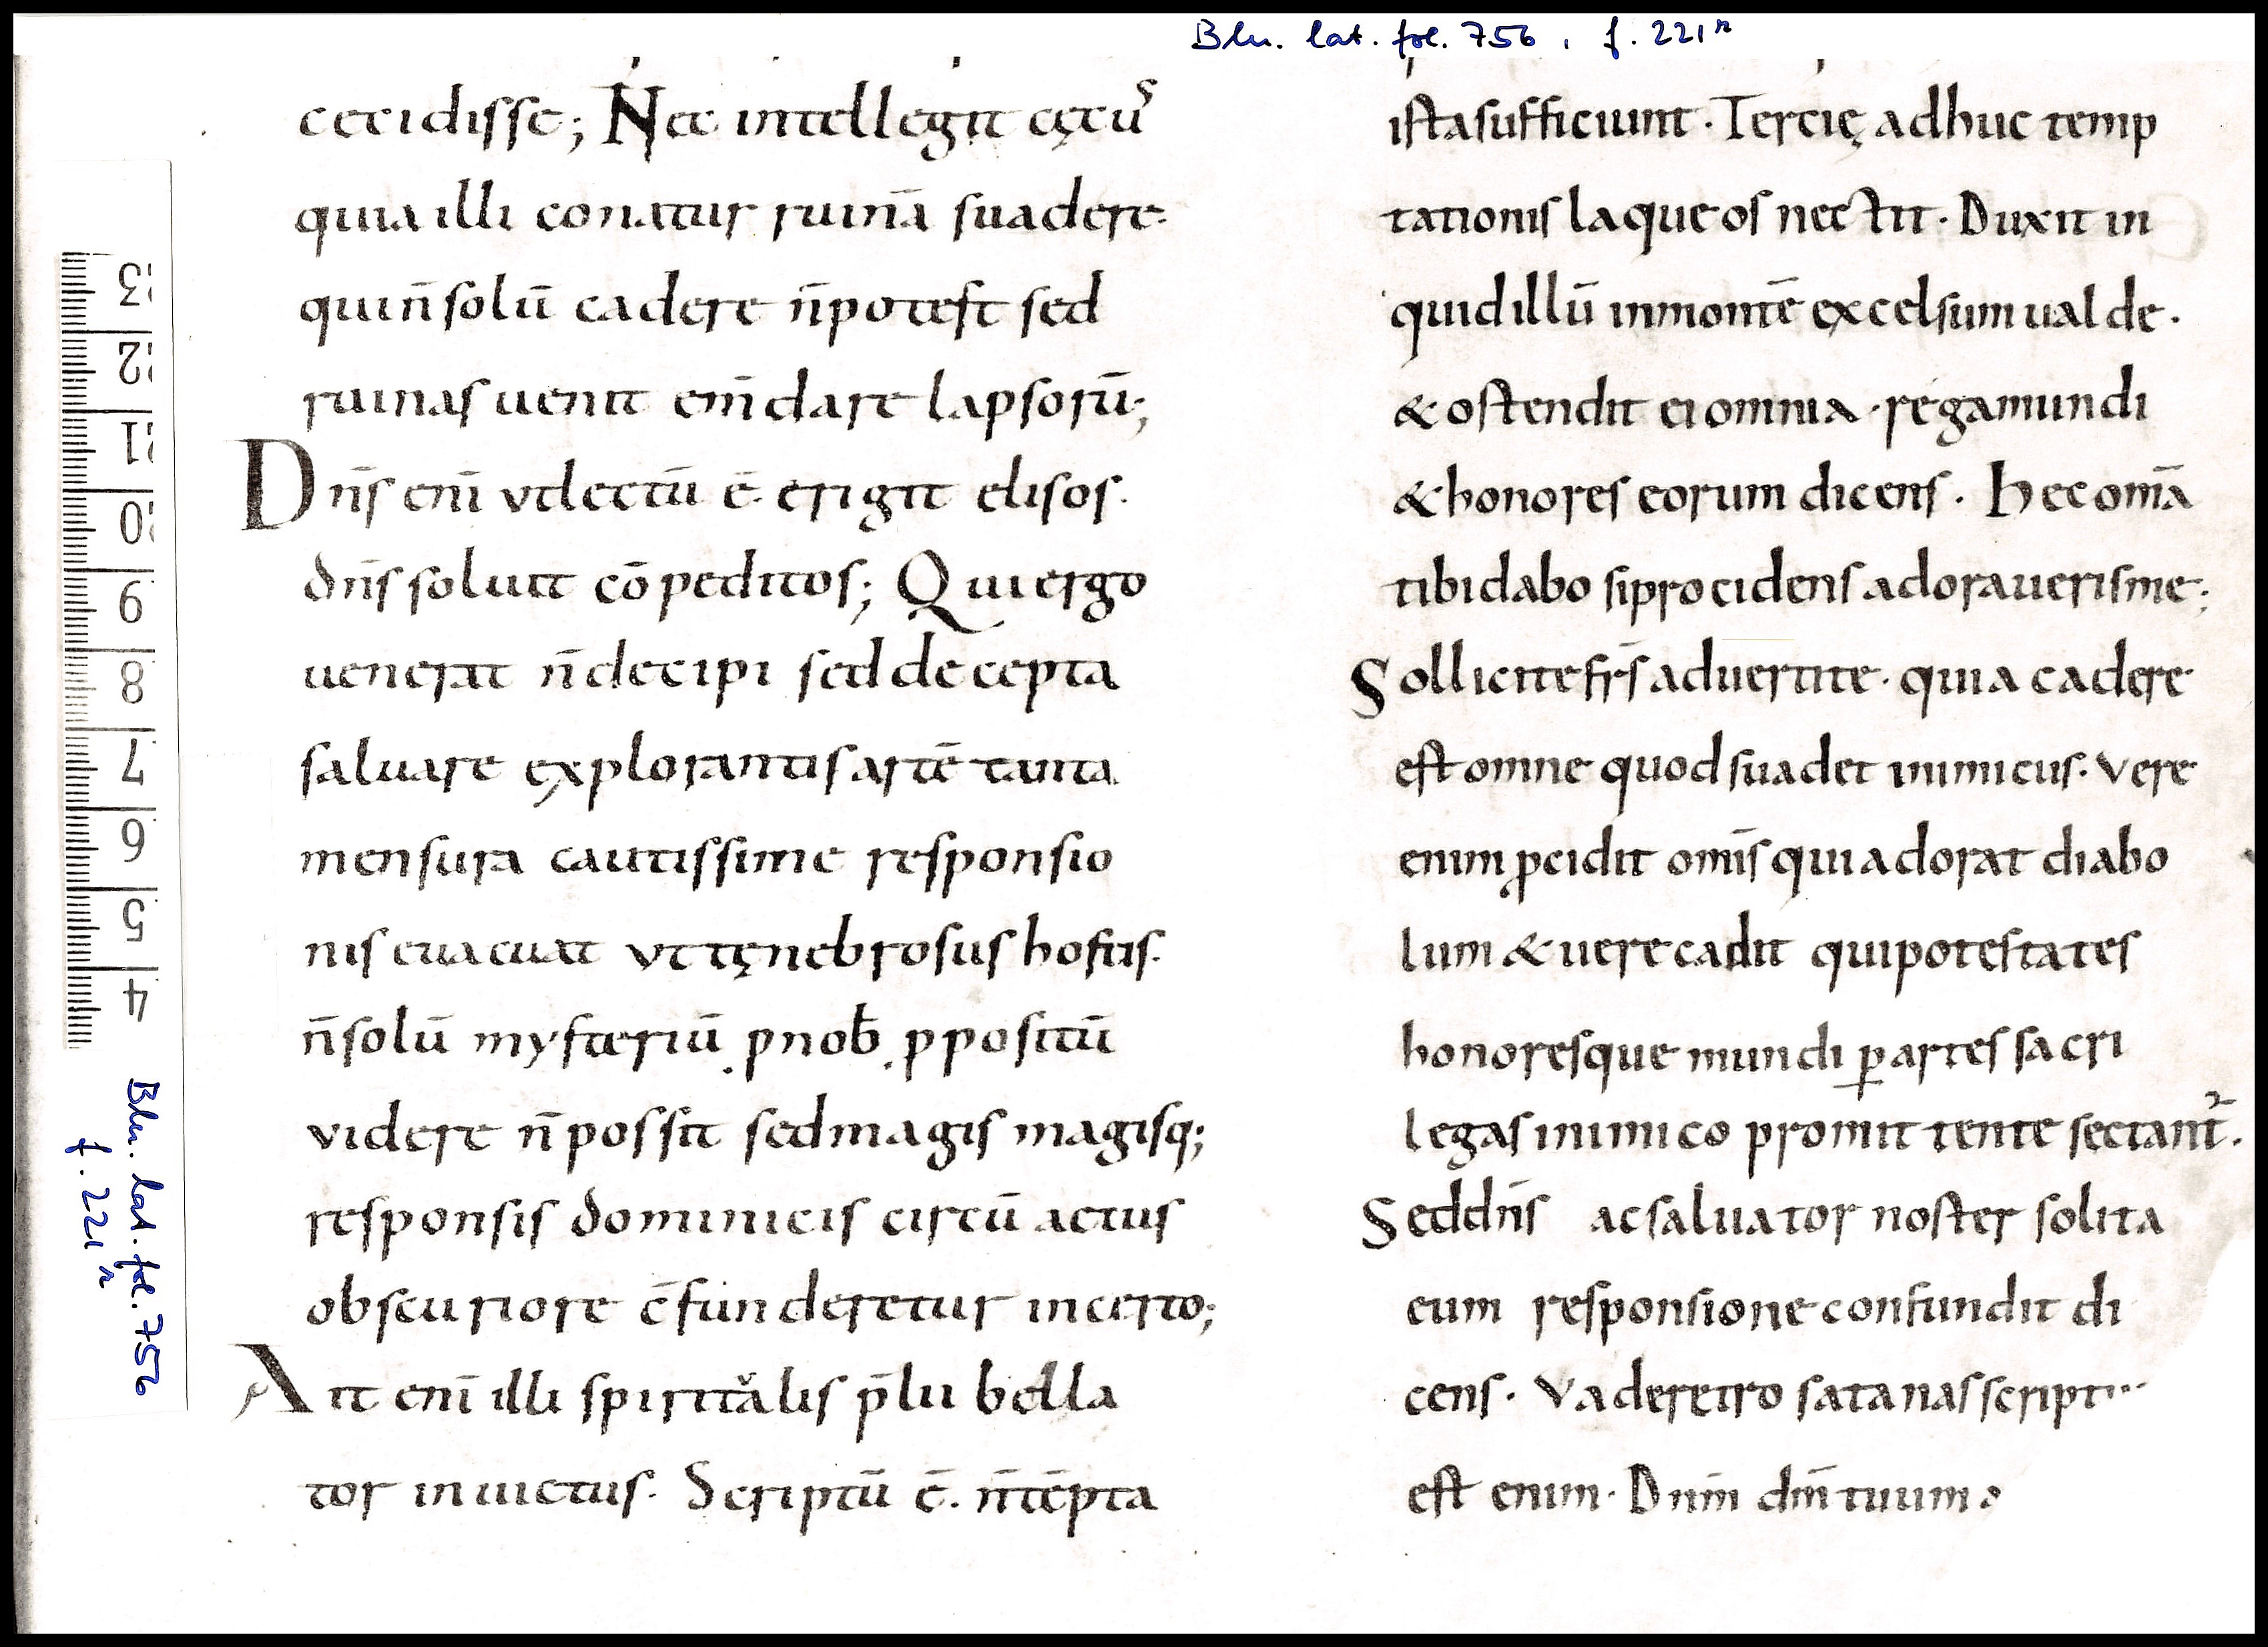 Bln. lat. fol. 756, f. 221r
cecidisse; Nec intellegit cęcus
quia illi conatur ruinā suadere.
qui n̄ solū cadere n̄ potest sed
ruinas uenit em̄dare lapsorū;
Dn̄s enī vt lectū ē. erigit elisos.
dn̄s soluit cōpeditos; Qui ergo
uenerat n̄ decipi sed decepta
saluare explorantis artē tanta
mensura cautissime responsio
nis euacuat vt tęnebrosus hostis.
n̄ solū mysteriū .p nob̄ .ppositū
videre n̄ possit sed magis magisq;
responsis dominicis circū actus
obscuriore c̄funderetur incerto;
Ait enī illi spiritalis p̄lii bella
tor inuictus. Scriptū ē. n̄ tēpta
ista sufficiunt. Tercię adhuc temp
tationis laqueos nectit. Duxit in
quid illū in montē excelsum ualde.
& ostendit ei omnia rega mundi
& honores eorum dicens. Hec om̄a
tibi dabo si procidens adoraueris me;
Sollicite fr̄s aduertite. quia cadere
est omne quod suadet inimicus. Vere
enim ꝓcidit om̄is qui adorat diabo
lum & uere cadit qui potestates
honoresque mundi ꝑ artes sacri
legas inimico promittente sectant᷑.
Sed dn̄s ac saluator noster solita
eum responsione confundit di
cens. Vade retro satanas script
est enim. Dnm̄ dm̄ tuum
4 5 6 7 8 9 20 21 22 23
Bln. lat. fol. 756
f. 221r